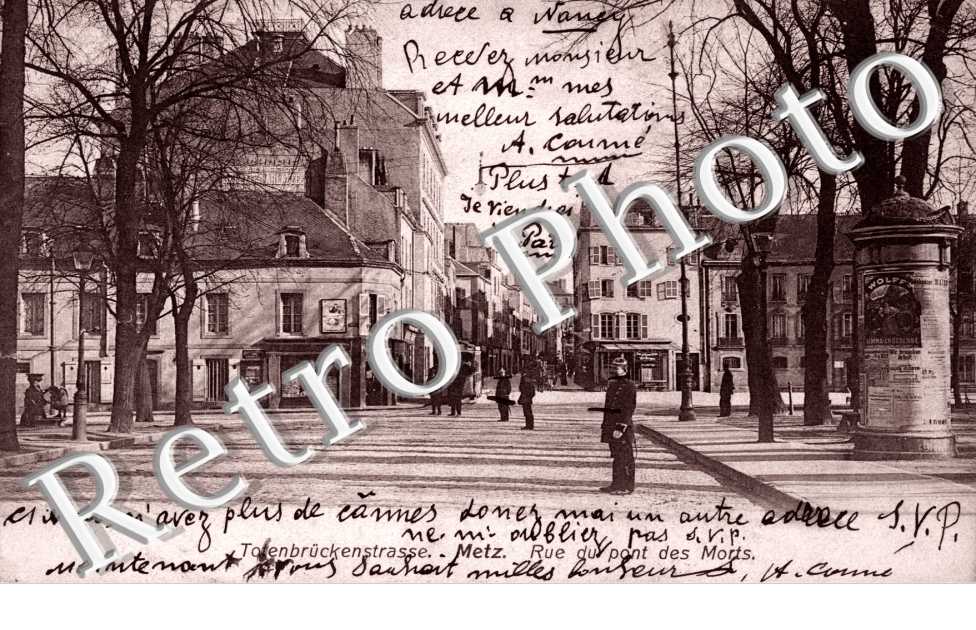 adrece a Nancy
Recevez monsieur
et Mm mes
meilleur salutations
A. Couné
Plus tard
Je viendrai
Par
WOLFF
Retro Photo
n'avez plus de cannes donez moi un autre adrece S.V.P.
ne m'oublier pas s.v.p.
Totenbrückenstrasse. - Metz. Rue du pont des Morts.
Maintenant vous Sauhait milles bonheur A. Couné